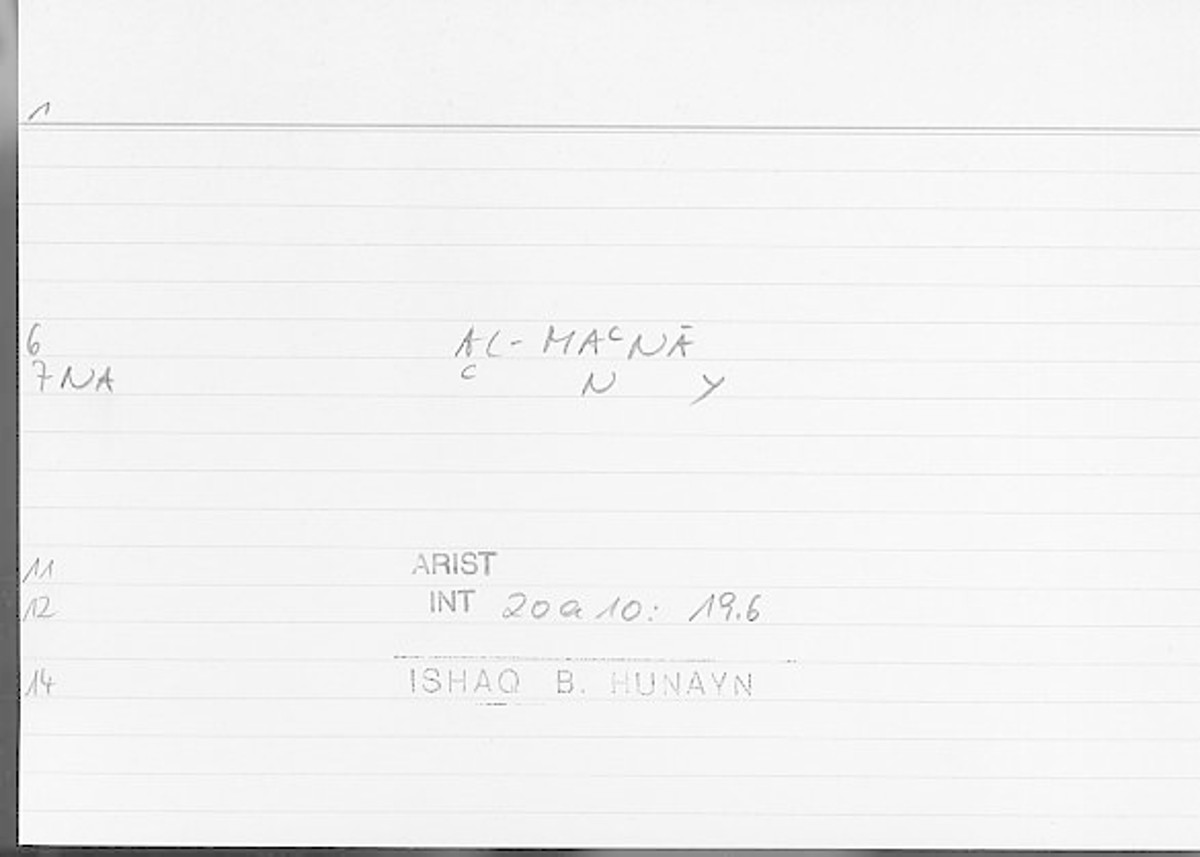 1
6 AL-MAᶜNĀ
7 NA C N Y
11 ARIST
12 INT 20a10: 19.6
14 ISHAQ B. HUNAYN